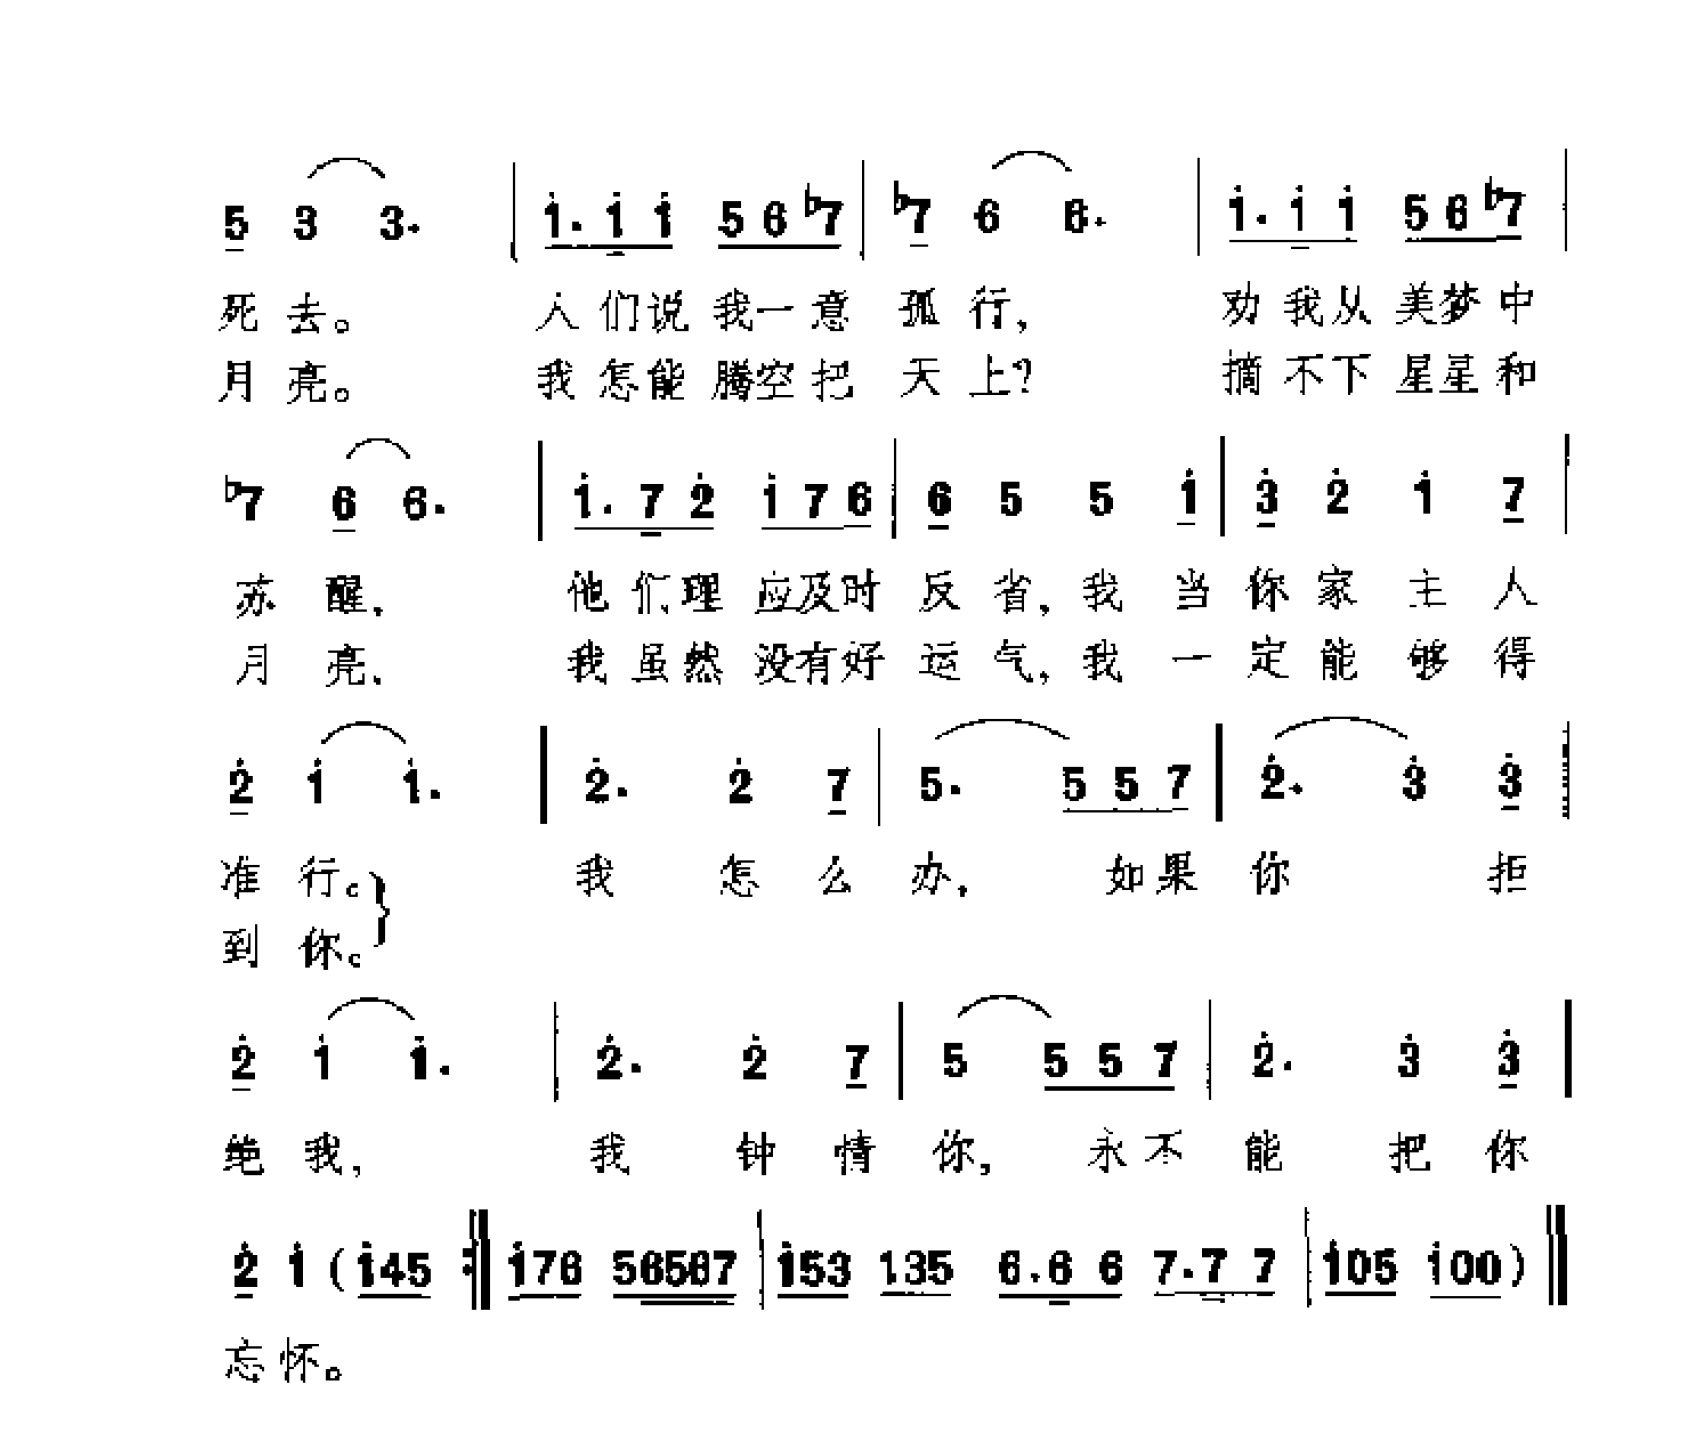 5 3 3. | i. i i 5 6 ♭7 | ♭7 6 6. | i. i i 5 6 ♭7 |
死 去。 人 们 说 我 一 意 孤 行, 劝 我 从 美 梦 中
月 亮。 我 怎 能 腾 空 把 天 上? 摘 不 下 星 星 和
♭7 6 6. | i. 7 2̇ i 7 6 | 6 5 5 i | 3̇ 2̇ i 7 |
苏 醒. 他 们 理 应 及 时 反 省, 我 当 你 家 主 人
月 亮. 我 虽 然 没 有 好 运 气, 我 一 定 能 够 得
2̇ i i. | 2̇. 2̇ 7 | 5. 5 5 7 | 2̇. 3̇ 3̇ |
准 行。} 我 怎 么 办, 如 果 你 拒
到 你。
2̇ i i. | 2̇. 2̇ 7 | 5 5 5 7 | 2̇. 3̇ 3̇ |
绝 我, 我 钟 情 你, 永 不 能 把 你
2̇ i (i45 :‖ i76 56567 | i53 135 6.6 6 7.7 7 | i05 i00) ‖
忘 怀。